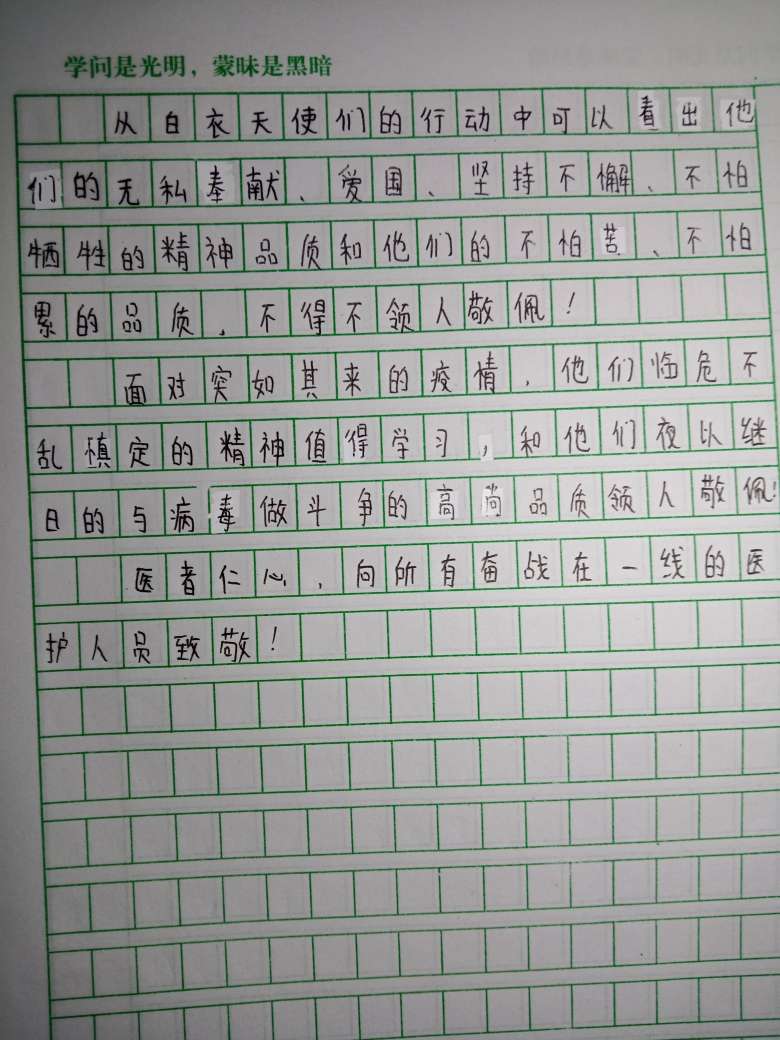 学问是光明，蒙昧是黑暗
从白衣天使们的行动中可以看出他
们的无私奉献、爱国、坚持不懈、不怕
牺牲的精神品质和他们的不怕苦、不怕
累的品质，不得不领人敬佩！
面对突如其来的疫情，他们临危不
乱慎定的精神值得学习，和他们夜以继
日的与病毒做斗争的高尚品质领人敬佩！
医者仁心，向所有奋战在一线的医
护人员致敬！